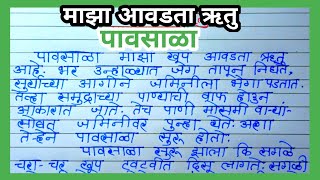 माझा आवडता ऋतु
पावसाळा
पावसाळा माझा खूप आवडता ऋतु
आहे. भर उन्हाळ्यात जग तापून निघते.
सूर्याच्या आगीने जमिनीला भेगा पडतात.
तेव्हा समुद्राच्या पाण्याची वाफ होऊन
आकाशात जाते. तेच पाणी मोसमी वाऱ्यां-
सोबत जमिनीवर पुन्हा येते. अशा
तऱ्हेने पावसाळा सुरू होतो.
पावसाळा सुरू झाला कि सगळे
चरा-चर खूप टवटवीत दिसू लागते. सगळी